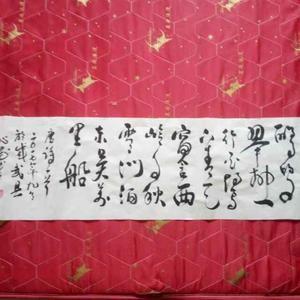 翠柳一
行白鹭
上青天
窗含西
岭千秋
雪门泊
东吴万
里船
唐诗一首
二〇一七年九月
於成武县